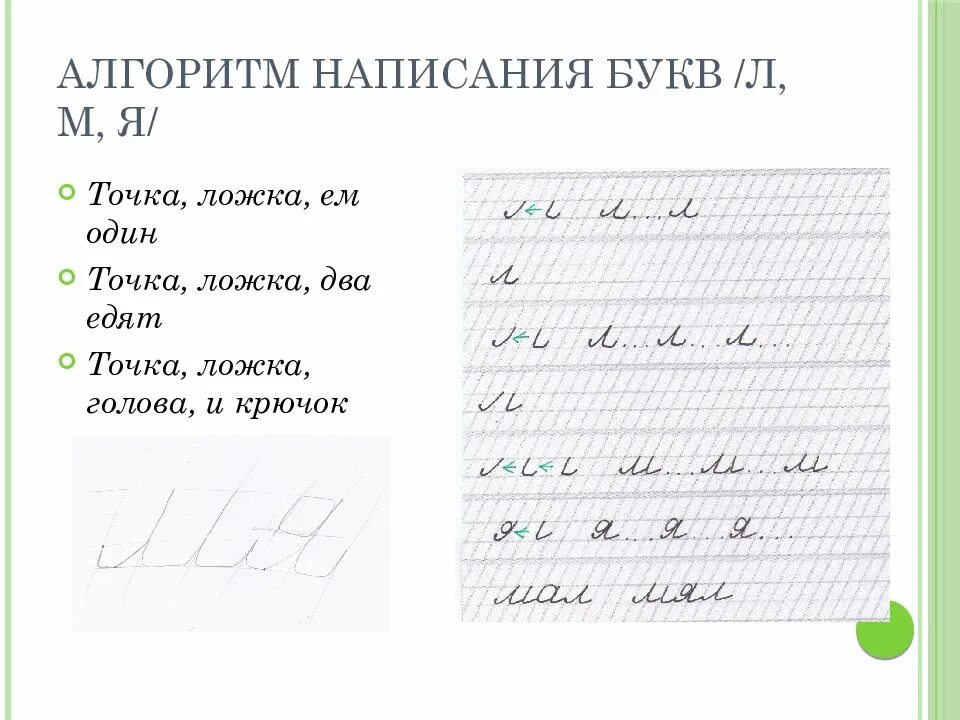 АЛГОРИТМ НАПИСАНИЯ БУКВ /Л,
М, Я/
Точка, ложка, ем
один
Точка, ложка, два
едят
Точка, ложка,
голова, и крючок
л...л
л
л...л...л...
м...м...м
я...я...я...
мал мял